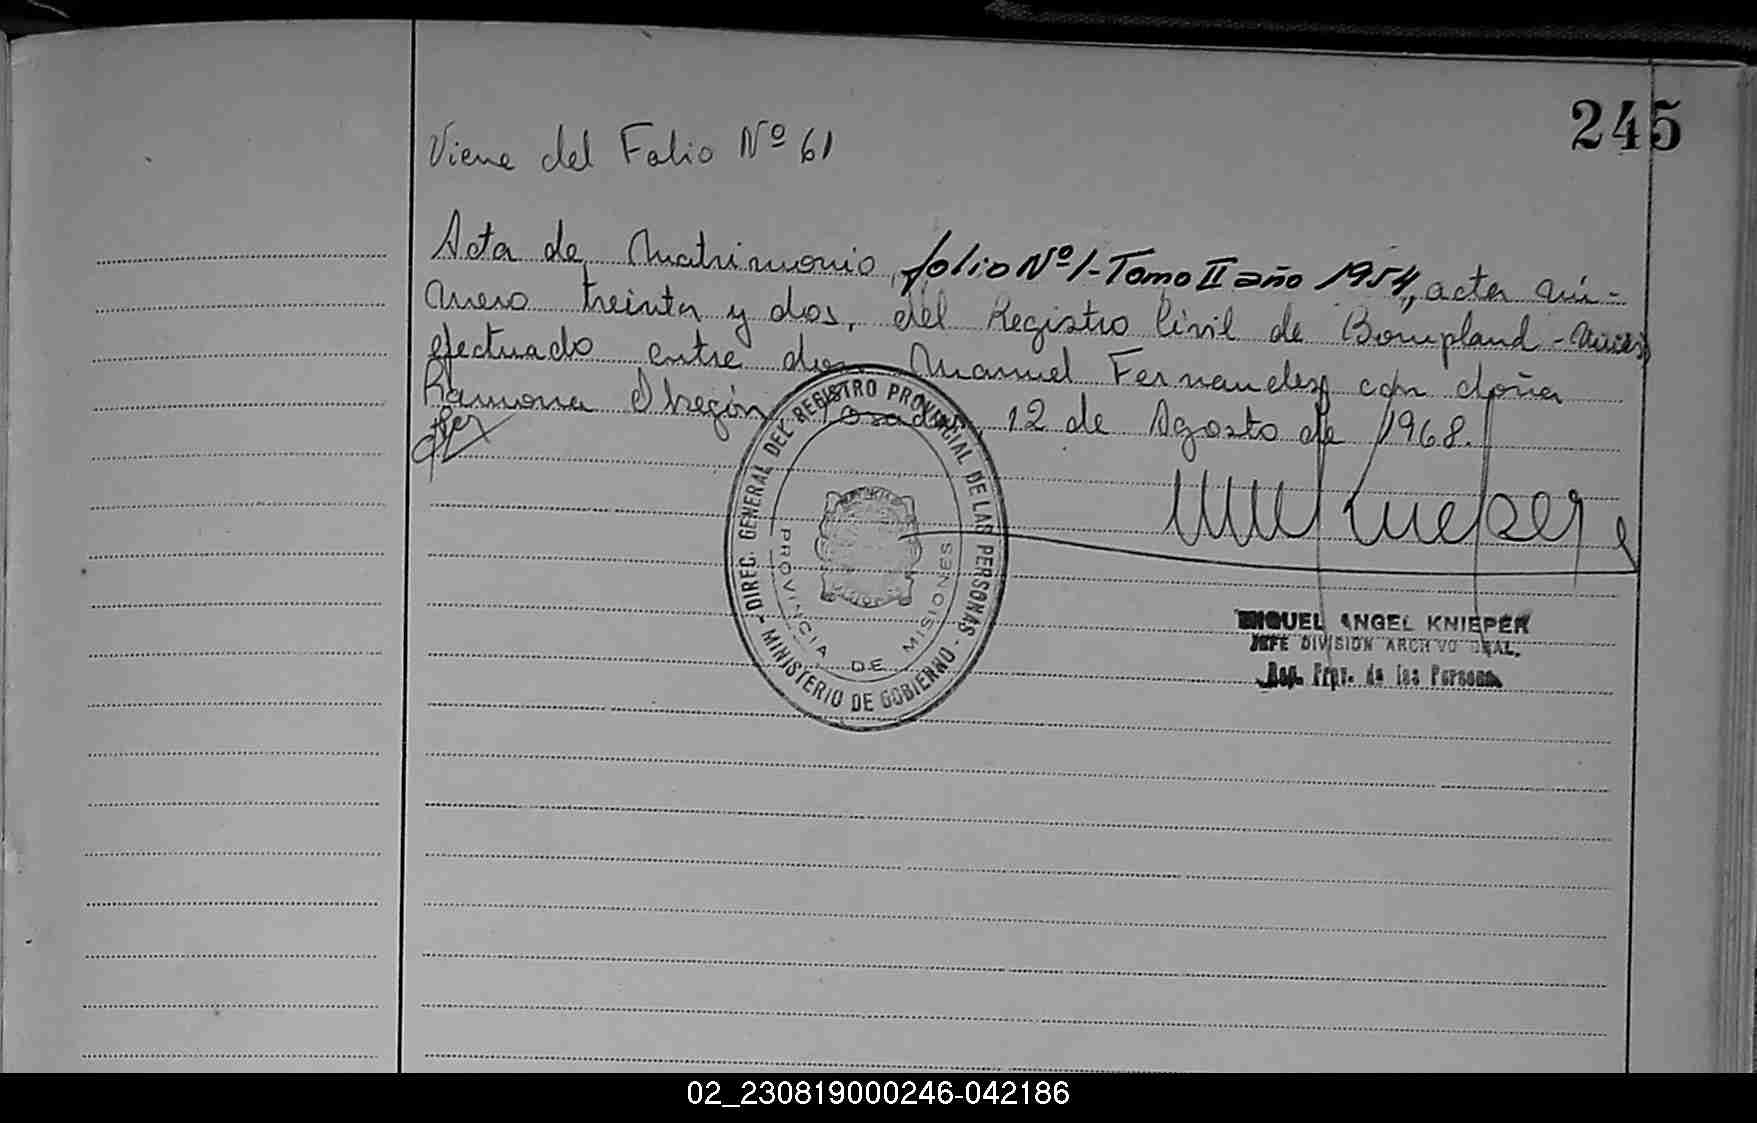 245
Viene del Folio Nº 61
Acta de Matrimonio, folio Nº 1-Tomo II año 1954, acta nú-
mero treinta y dos, del Registro Civil de Bompland -
efectuado entre don Manuel Fernandez con doña
Ramona Obregón. Posadas, 12 de Agosto de 1968.
DIREC. GENERAL DEL REGISTRO PROVINCIAL DE LAS PERSONAS
- MINISTERIO DE GOBIERNO -
PROVINCIA DE MISIONES
MIGUEL ANGEL KNIEPER
JEFE DIVISION ARCHIVO GRAL.
Reg. Prov. de las Personas
02_230819000246-042186